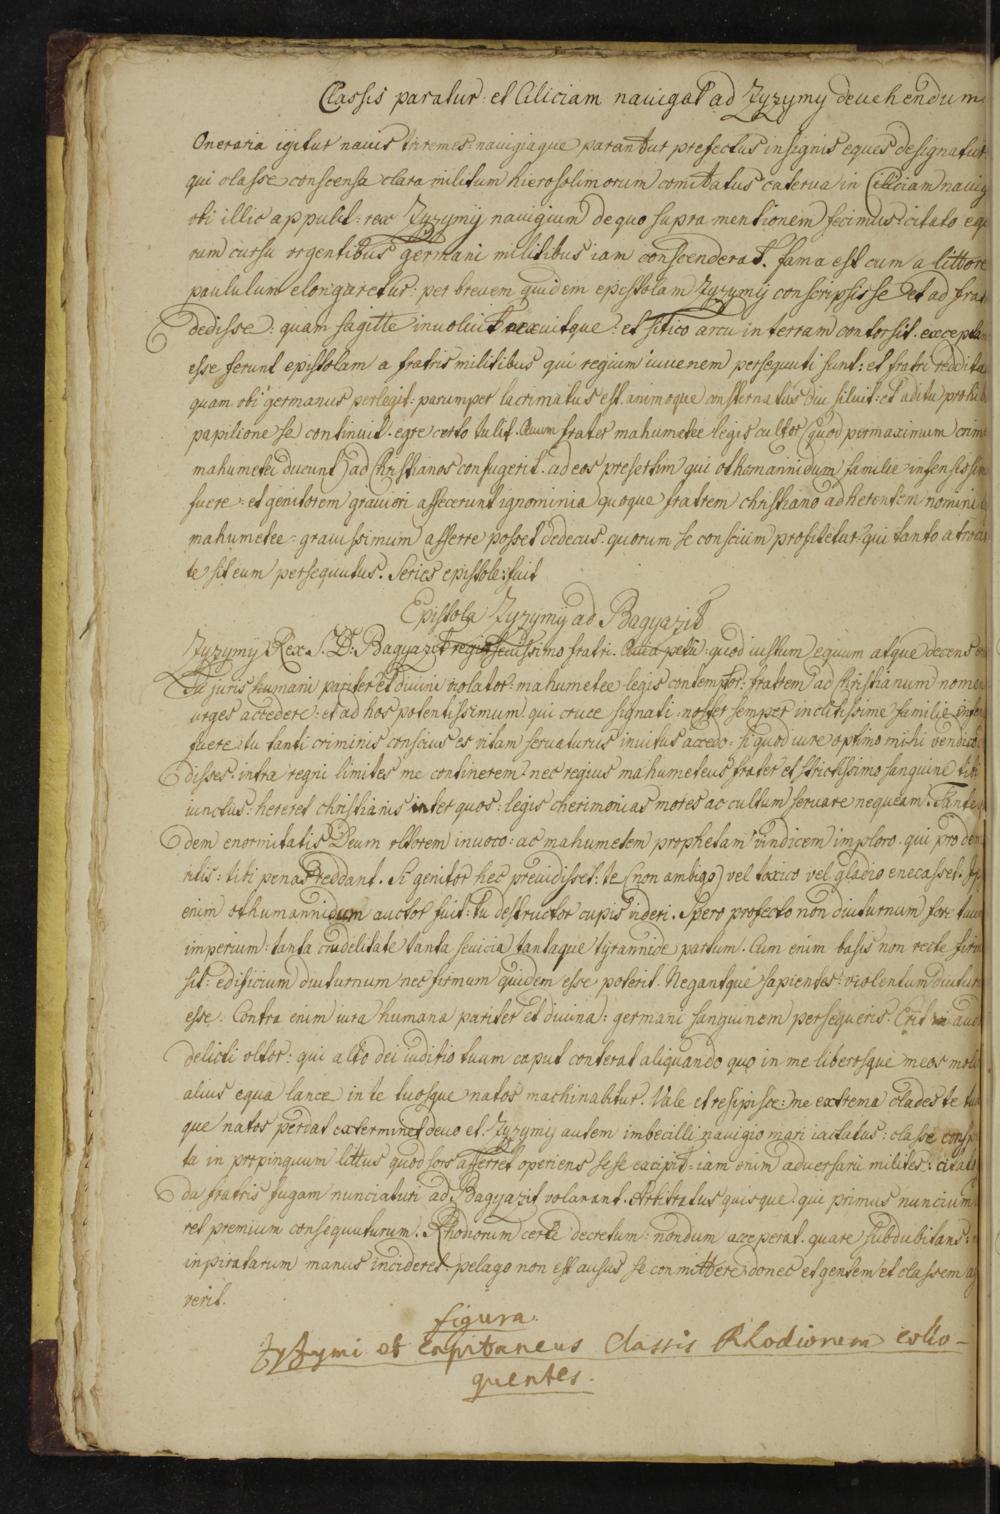 Classis paratur: et Ciliciam nauigat ad Zyzymy deuehendum
Oneraria igitur nauis triremes nauigiaque parantur prefectus insignis eques designatur
qui classe conscensa clara militum hierosolimorum comitatus caterua in Ciliciam nauig
obi illic appulit: rex Zyzymij nauigium de quo supra mentionem fecimus: citato equ
rum cursu urgentibus germani militibus iam conscenderat. fama est cum a littore
paululum elongaretur: per breuem quidem epistolam Zyzymij conscripsisse et ad frat
dedisse: quam sagitte inuoluit nexuitque: et sitico arcu in terram contorsit. exceptam
esse ferunt epistolam a fratris militibus qui regium iuuenem persequuti sunt: et fratri reddita
quam obi germanus perlegit: parumper lacrimatus est. animoque consternatus diu siluit: et aditu prohib
papilione se continuit. egre certo tulit. Quum frater mahumetee legis cultor (quod permaximum crim
mahumetei ducunt) ad Christianos confugerit. ad eos presertim qui othomannidum familie infensissim
fuere: et genitorem grauiori affecerunt ignominia quoque fratrem christiano adherentem nomini
mahumetee grauissimum afferre posset dedecus. quorum se conscium profitetur: qui tanto atroci
te sit eum persequutus. Series epistole: fuit
Epistola Zyzymij ad Bagyazit
Zyzymy Rex. S. D. Bagyazit regi seuissimo fratri. quod iustum equum atque decens
Tu juris humani pariter et diuini violator: mahumetee legis contemptor: fratrem ad Christianum nomen
urges accedere: et ad hos potentissimum qui cruce signati noster semper inclitissime familie
fuere tu tanti criminis conscius es vitam seruaturus inuitus accedo. si quod iure optimo mihi vendico
disses. intra regni limites me continerem nec regius mahumeteus frater et strictissimo sanguine tibi
iunctus: hereret christianis inter quos: legis cherimonias mores ac cultum seruare nequeam. Tante
dem enormitatis Deum oltorem inuoco: ac mahumetem prophetam vindicem imploro. qui pro dem
ritis: tibi penas reddant. Si genitor hec preuidisset: te (non ambigo) vel toxico vel gladio enecasset. Ip
enim othumannidum auctor fuit: tu destructor cupis videri. Spero profecto non diuturnum fore tuum
imperium: tanta crudelitate tanta seuicia tantaque tyrannide partum. Cum enim basis non recte firm
sit: edificium diuturnum nec firmum quidem esse poterit. Negantque sapientes: violentum diutur
esse. Contra enim iura humana pariter et diuina: germani sanguinem persequeris. Erit
delicti oltor: qui alto dei iuditio tuum caput conterat aliquando quo in me liberosque meos moli
alius equa lance in te tuosque natos machinabitur. Vale et resipisce: ne extrema clades te tuos
que natos perdat exterminet deuo et. Zyzymij autem imbecilli nauigio mari iactatus: classe consp
ta in propinquum littus quod sors afferret operiens sese excipit: iam enim aduersarii milites: citat
da fratris fugam nunciaturi ad Bagyazit volarant. Arbitratus quisque: qui primus nuncium
ret premium consequuturum. Rhodiorum certe decretum: nondum acceperat. quare subdubitans:
in piratarum manus incideret: pelago non est ausus se conmittere: donec et gentem et classem a
uerit.
figura.
Zyzymi et Capitaneus Classis Rhodiorum collo-
quentes.